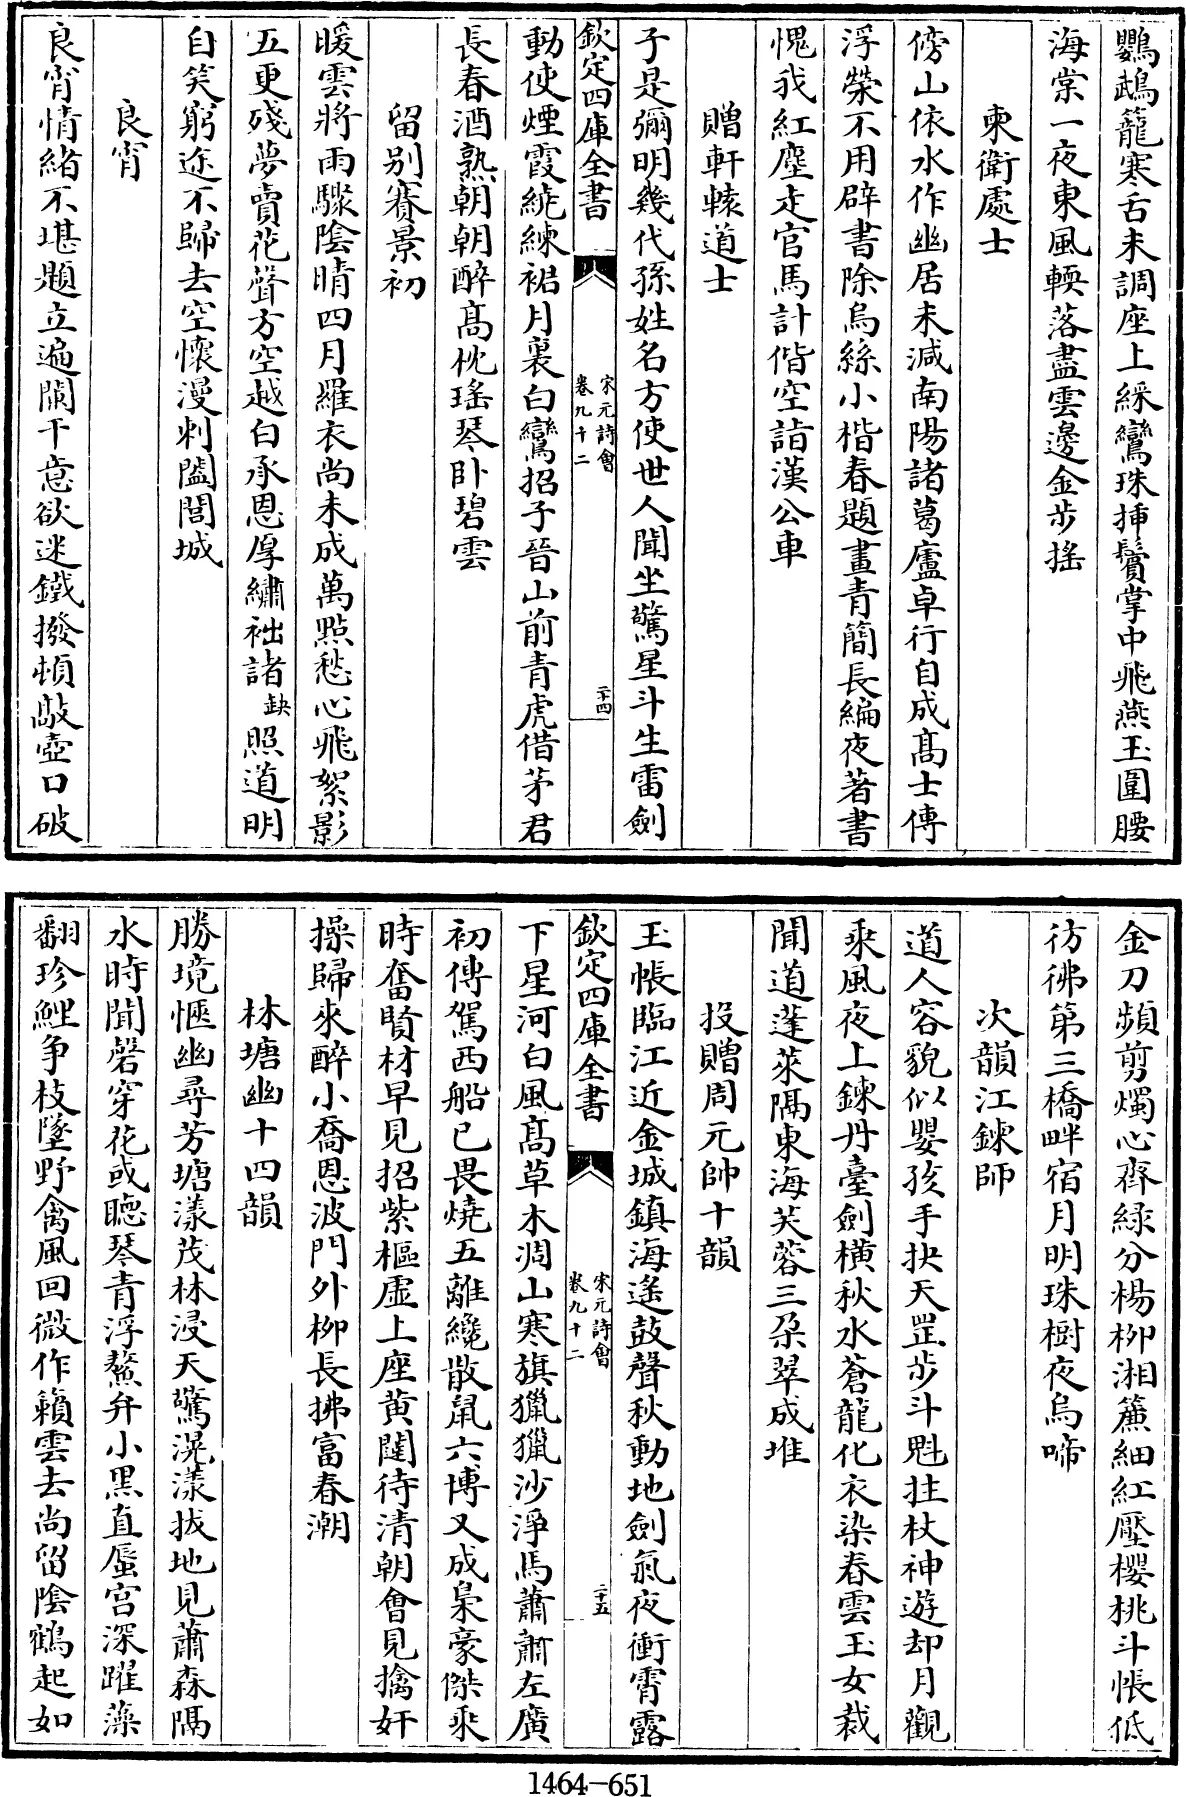 鸚鵡籠寒舌未調座上綵鸞珠揷鬢掌中飛燕玉圍腰
海棠一夜東風輭落盡雲邊金步搖
柬衛處士
傍山依水作幽居未減南陽諸葛廬卓行自成髙士傳
浮榮不用辟書除烏絲小楷春題畫青簡長編夜著書
愧我紅塵走官馬計偕空詣漢公車
贈軒轅道士
子是彌明幾代孫姓名方使世人聞坐驚星斗生雷劍
欽定四庫全書
宋元詩會
卷九十二
二十四
動使煙霞繞練裙月裏白鸞招子晉山前青虎借茅君
長春酒熟朝朝醉髙枕瑤琴卧碧雲
留别賽景初
暖雲將雨驟陰晴四月羅衣尚未成萬點愁心飛絮影
五更殘夢賣花聲方空越白承恩厚繡袦諸缺照道明
自笑窮途不歸去空懷漫刺闔閭城
良宵
良宵情緒不堪題立遍闌干意欲迷鐵撥頓敲壺口破
金刀頻剪燭心齊緑分楊栁湘簾細紅壓櫻桃斗帳低
彷彿第三橋畔宿月明珠樹夜烏啼
次韻江鍊師
道人容貌似嬰孩手抉天罡步斗魁拄杖神遊却月觀
乘風夜上鍊丹臺劍横秋水蒼龍化衣染春雲玉女裁
聞道蓬萊隔東海芙蓉三朶翠成堆
投贈周元帥十韻
玉帳臨江近金城鎮海遙鼓聲秋動地劍氣夜衝霄露
欽定四庫全書
宋元詩會
卷九十二
二十五
下星河白風髙草木凋山寒旗獵獵沙淨馬蕭蕭左廣
初傳駕西船已畏焼五離纔散鼠六博又成梟豪傑乘
時奮賢材早見招紫樞虛上座黄闥待清朝會見擒奸
操歸來醉小喬恩波門外栁長拂富春潮
林塘幽十四韻
勝境愜幽尋芳塘漾茂林浸天驚滉漾拔地見蕭森隔
水時聞磬穿花或聽琴青浮鰲弁小黒直蜃宫深躍藻
翻珍鯉争枝墜野禽風回微作籟雲去尚留陰鶴起如
1464-651